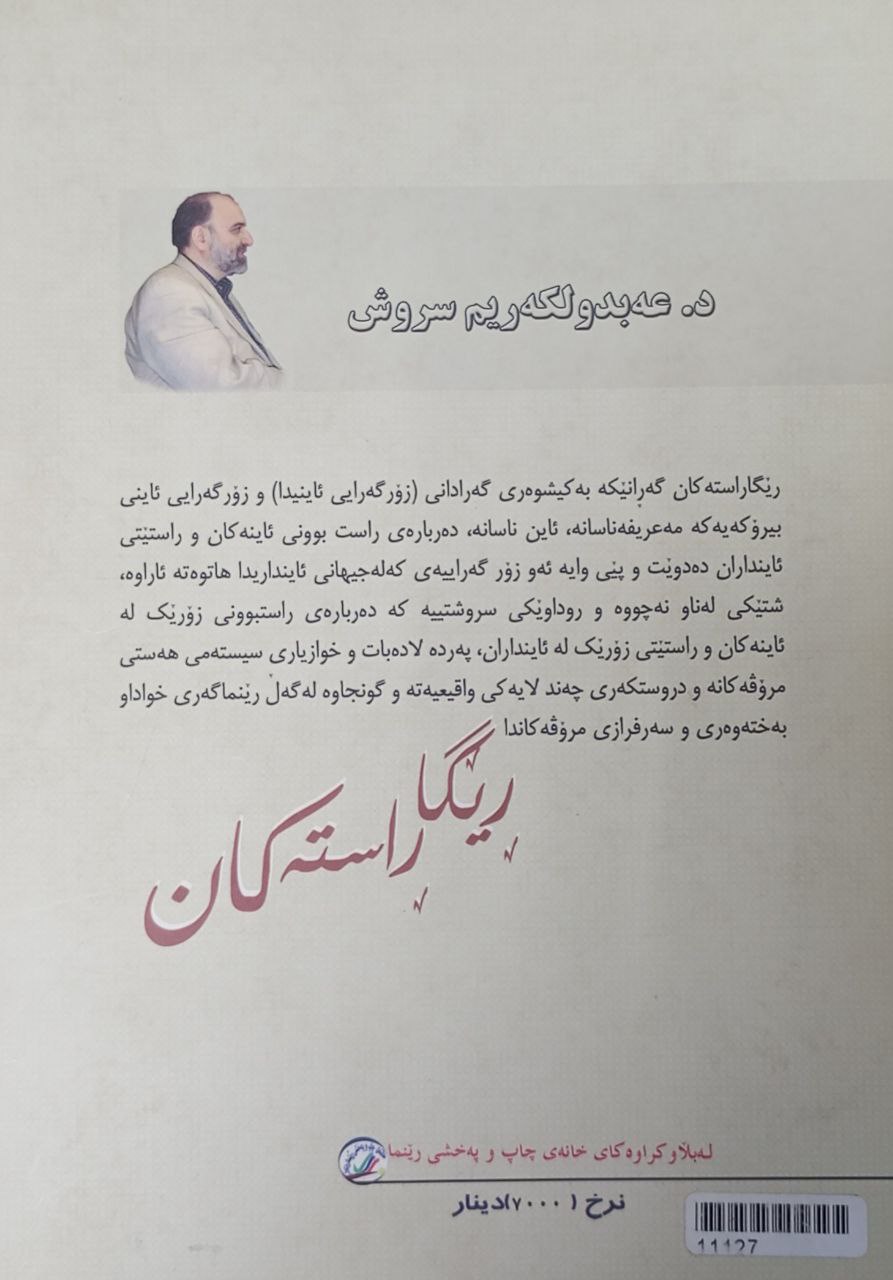 د. عەبدولکەریم سروش
رێگاراستەکان گەڕانێکە بەکیشوەری گەرادانی (زۆرگەرایی ئاینیدا) و زۆرگەرایی ئاینی
بیرۆکەیەکە مەعریفەناسانە، ئاین ناسانە، دەربارەی راست بوونی ئاینەکان و راستێتی
ئاینداران دەدوێت و پێی وایە ئەو زۆر گەراییەی کەلەجیهانی ئاینداریدا هاتوەتە ئاراوە،
شتێکی لەناو نەچووە و روداوێکی سروشتییە کە دەربارەی راستبوونی زۆرێک لە
ئاینەکان و راستێتی زۆرێک لە ئاینداران، پەردە لادەبات و خوازیاری سیستەمی هەستی
مرۆڤەکانە و دروستکەری چەند لایەکی واقیعیەتە و گونجاوە لەگەڵ رێنماگەری خواداو
بەختەوەری و سەرفرازی مرۆڤەکاندا
ڕێگا ڕاستەکان
لەبڵاوکراوەکای خانەی چاپ و پەخشی رێنما
نرخ (٧٠٠٠)دینار
11127